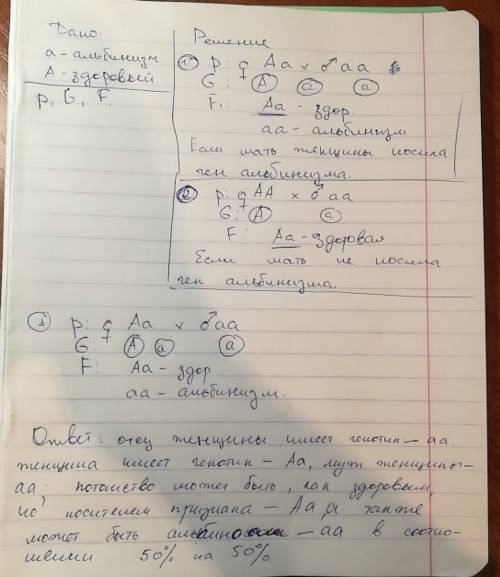 Дано:
а - альбинизм
А - здоровый
P, G, F.
Решение
1) P: ♀ Аа × ♂ аа
G: А а а
F₁: Аа - здор.
аа - альбинизм
Если мать женщины носила
ген альбинизма.
2 P: ♀ АА × ♂ аа
G: А а
F: Аа - здоровая
Если мать не носила
ген альбинизма.
3 P: ♀ Аа × ♂ аа
G: А а а
F: Аа - здор
аа - альбинизм.
Ответ: отец женщины имеет генотип - аа.
женщина имеет генотип - Аа, муж женщины -
аа; потомство может быть, как здоровым,
но носителем признака - Аа, а также
может быть - аа в соотно-
шении 50% на 50%